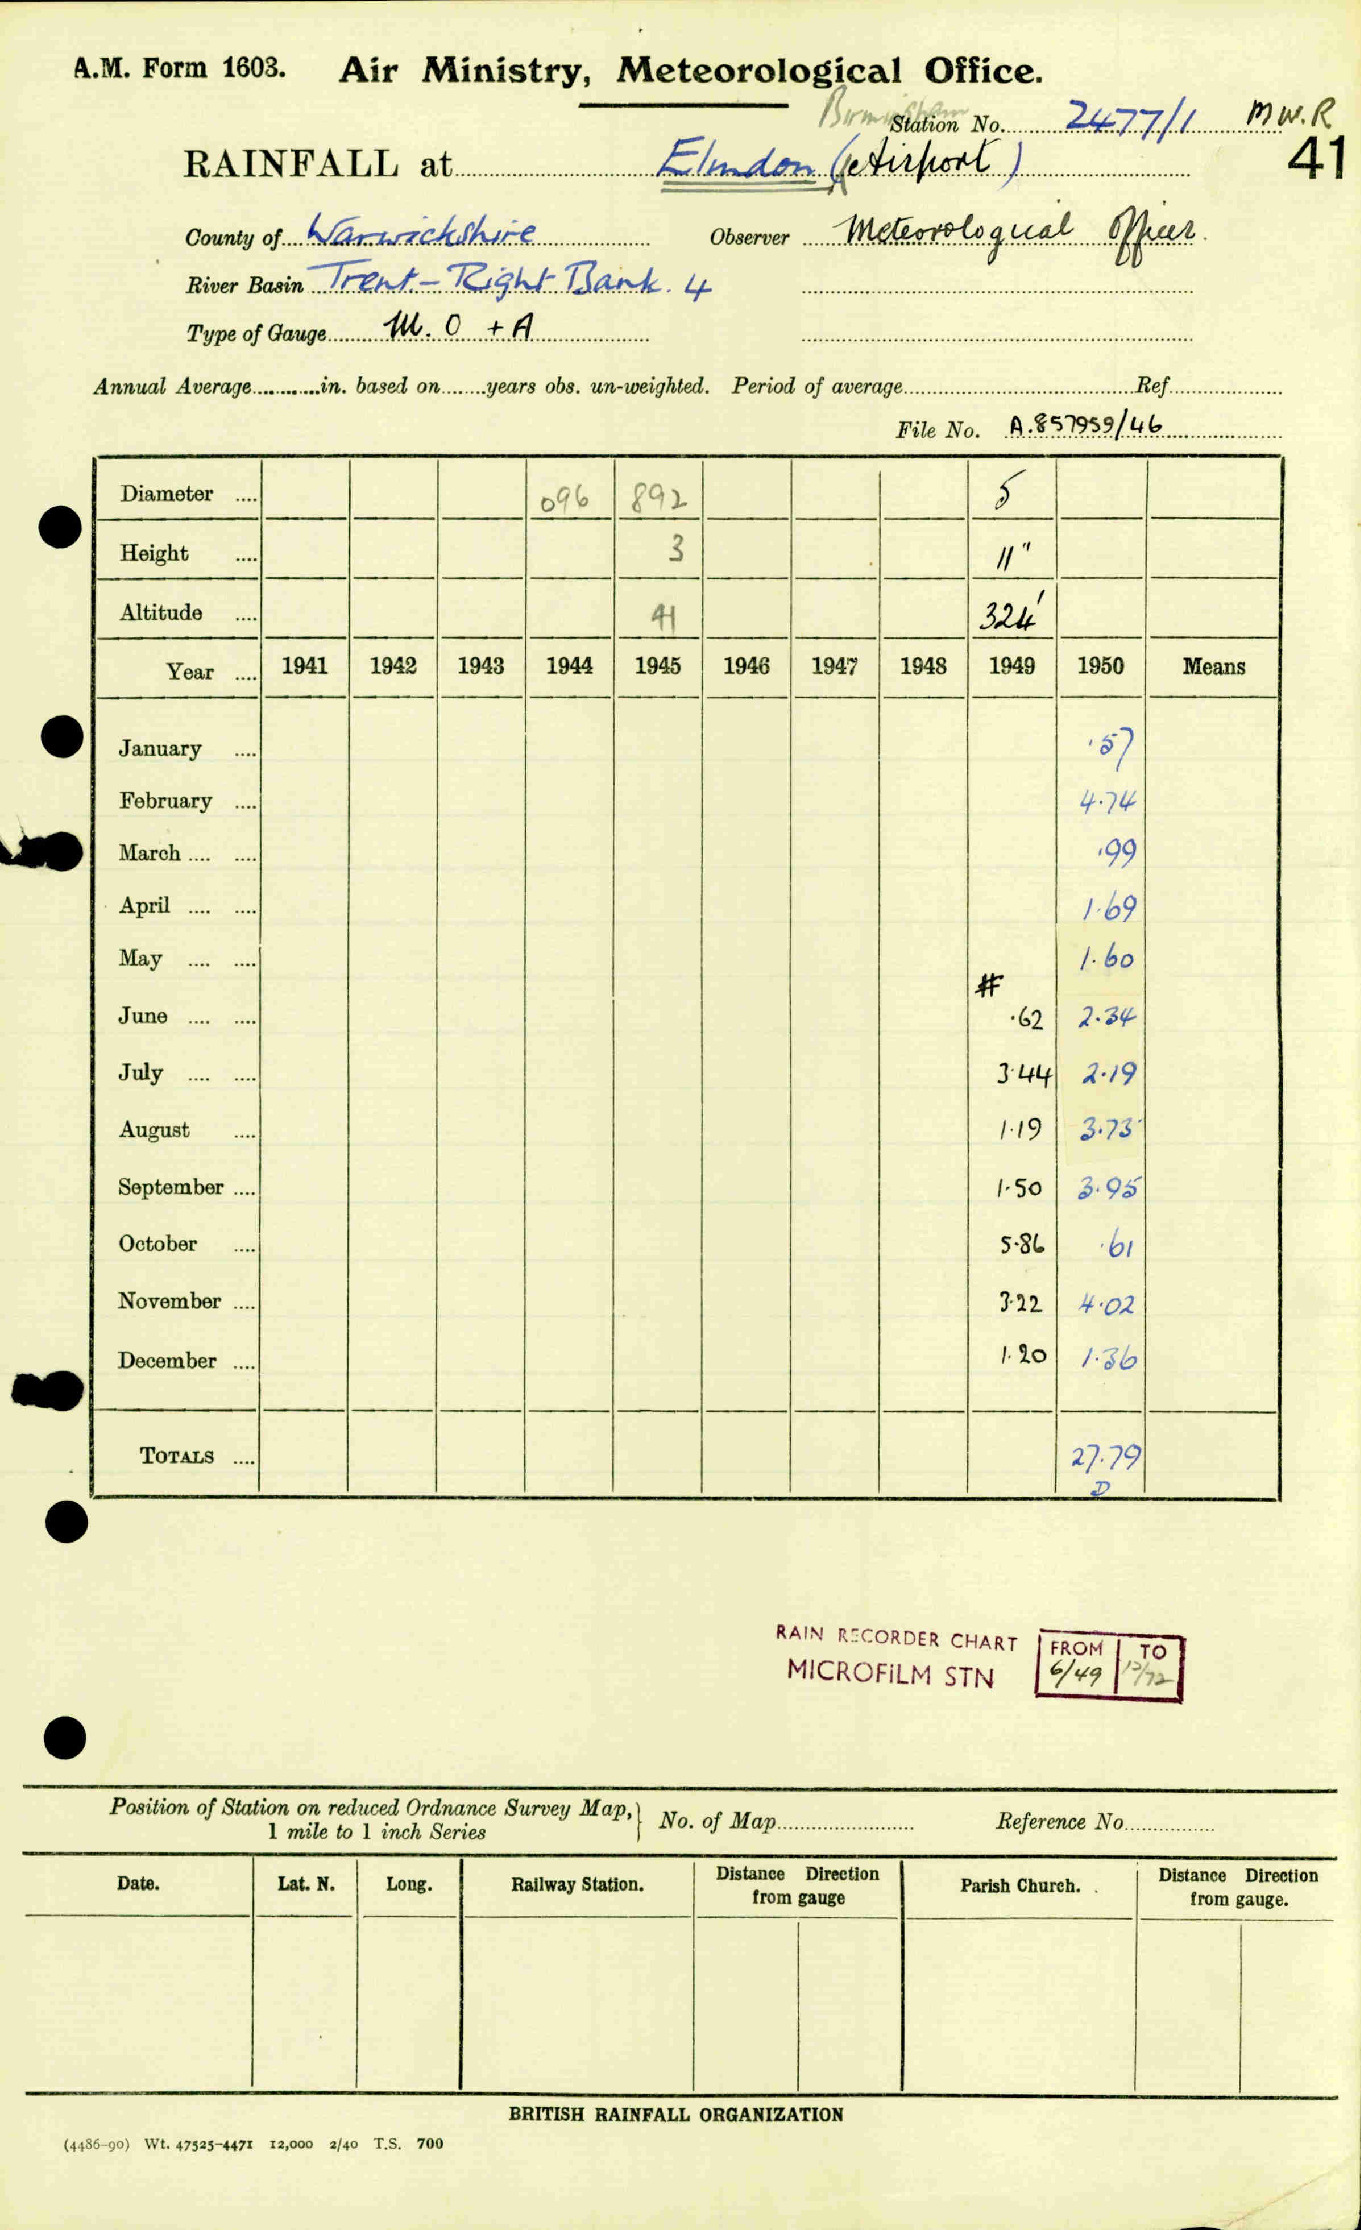 A.M. Form 1603. Air Ministry, Meteorological Office.
Birmingham
Station No. 2477/1 M W. R
RAINFALL at Elmdon (Airport) 41
County of Warwickshire Observer Meteorological Officer.
River Basin Trent - Right Bank. 4
Type of Gauge M. O + A
Annual Average............in. based on........years obs. un-weighted. Period of average............Ref............
File No. A.857959/46
Diameter .... 096 892 5
Height .... 3 11"
Altitude .... 41 324'
Year .... 1941 1942 1943 1944 1945 1946 1947 1948 1949 1950 Means
January .... .57
February .... 4.74
March .... .... .99
April .... .... 1.69
May .... .... 1.60
#
June .... .... .62 2.34
July .... .... 3.44 2.19
August .... 1.19 3.73
September .... 1.50 3.95
October .... 5.86 .61
November .... 3.22 4.02
December .... 1.20 1.36
TOTALS .... 27.79
D
RAIN RECORDER CHART FROM TO
MICROFILM STN 6/49 12/72
Position of Station on reduced Ordnance Survey Map,
1 mile to 1 inch Series
No. of Map............ Reference No............
Date. Lat. N. Long. Railway Station. Distance from gauge Direction from gauge Parish Church. Distance from gauge. Direction from gauge.
BRITISH RAINFALL ORGANIZATION
(4486-90) Wt. 47525-4471 12,000 2/40 T.S. 700